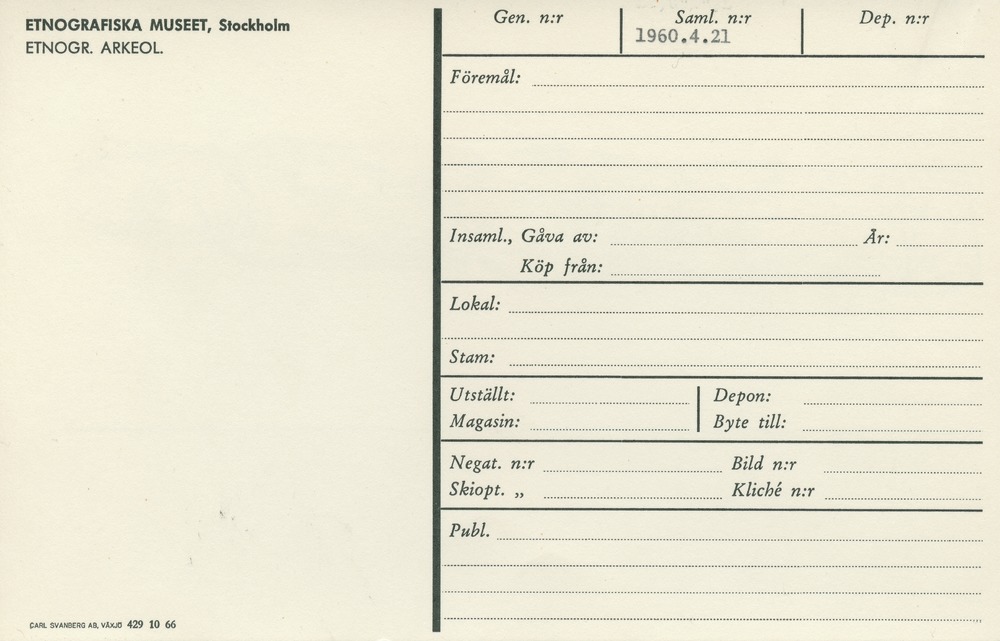 ETNOGRAFISKA MUSEET, Stockholm
ETNOGR. ARKEOL.
Gen. n:r
Saml. n:r
1960.4.21
Dep. n:r
Föremål:
Insaml., Gåva av:
År:
Köp från:
Lokal:
Stam:
Utställt:
Depon:
Magasin:
Byte till:
Negat. n:r
Bild n:r
Skiopt. „
Kliché n:r
Publ.
CARL SVANBERG AB, VÄXJÖ 429 10 66